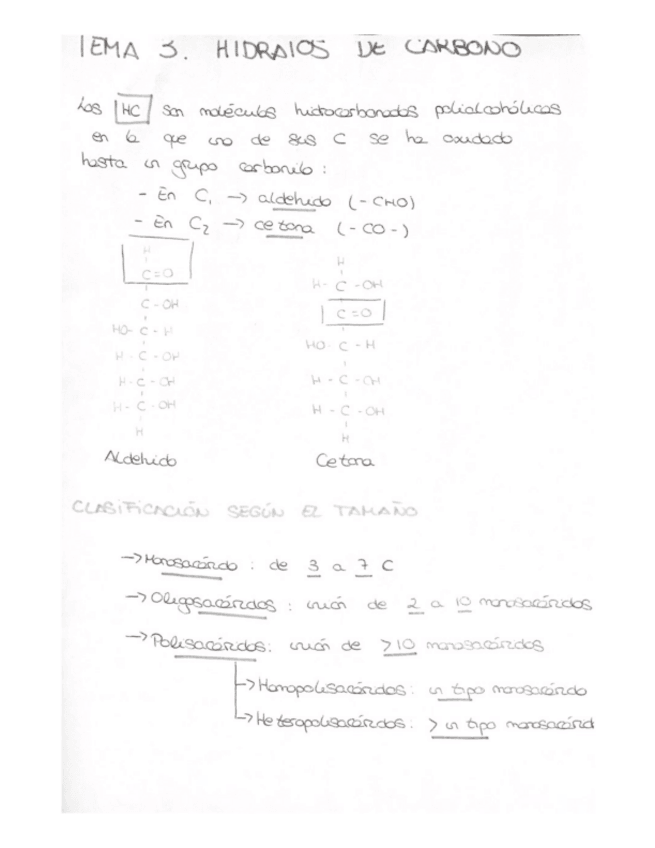 TEMA 3. HIDRATOS DE CARBONO
Los HC son moléculas hidrocarbonadas polialcohólicas
en la que uno de sus C se ha oxidado
hasta un grupo carbonilo :
- En C₁ → aldehido (-CHO)
- En C₂ → cetona (-CO-)
H
C=O
C-OH
HO-C-H
H-C-OH
H-C-OH
H-C-OH
H
Aldehido
H
H-C-OH
C=O
HO-C-H
H-C-OH
H-C-OH
H
Cetona
CLASIFICACIÓN SEGÚN EL TAMAÑO
→ Monosacárido : de 3 a 7 C
→ Oligosacáridos : unión de 2 a 10 monosacáridos
→ Polisacáridos: unión de >10 monosacáridos
→ Homopolisacáridos: un tipo monosacárido
→ Heteropolisacáridos: > un tipo monosacárid